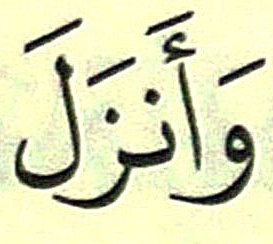 وَأَنزَلَ